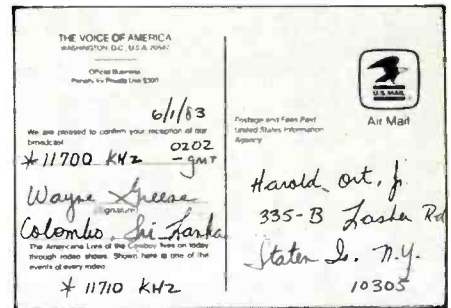 THE VOICE OF AMERICA
WASHINGTON, D.C., U.S.A. 20547
Official Business
Penalty for Private Use $300
6/1/83
We are pleased to confirm your reception of our
broadcast
0202
- GMT
* 11700 KHz
Wayne Greene
signature
Colombo, Sri Lanka
The Americana Lore of the Cowboy lives on today
through rodeo shows. Shown here is one of the
events of every rodeo.
* 11710 KHz
U.S. MAIL
Air Mail
Postage and Fees Paid
United States Information
Agency
Harold Ort, Jr.
335-B Lasher Rd
Staten Is. N.Y.
10305